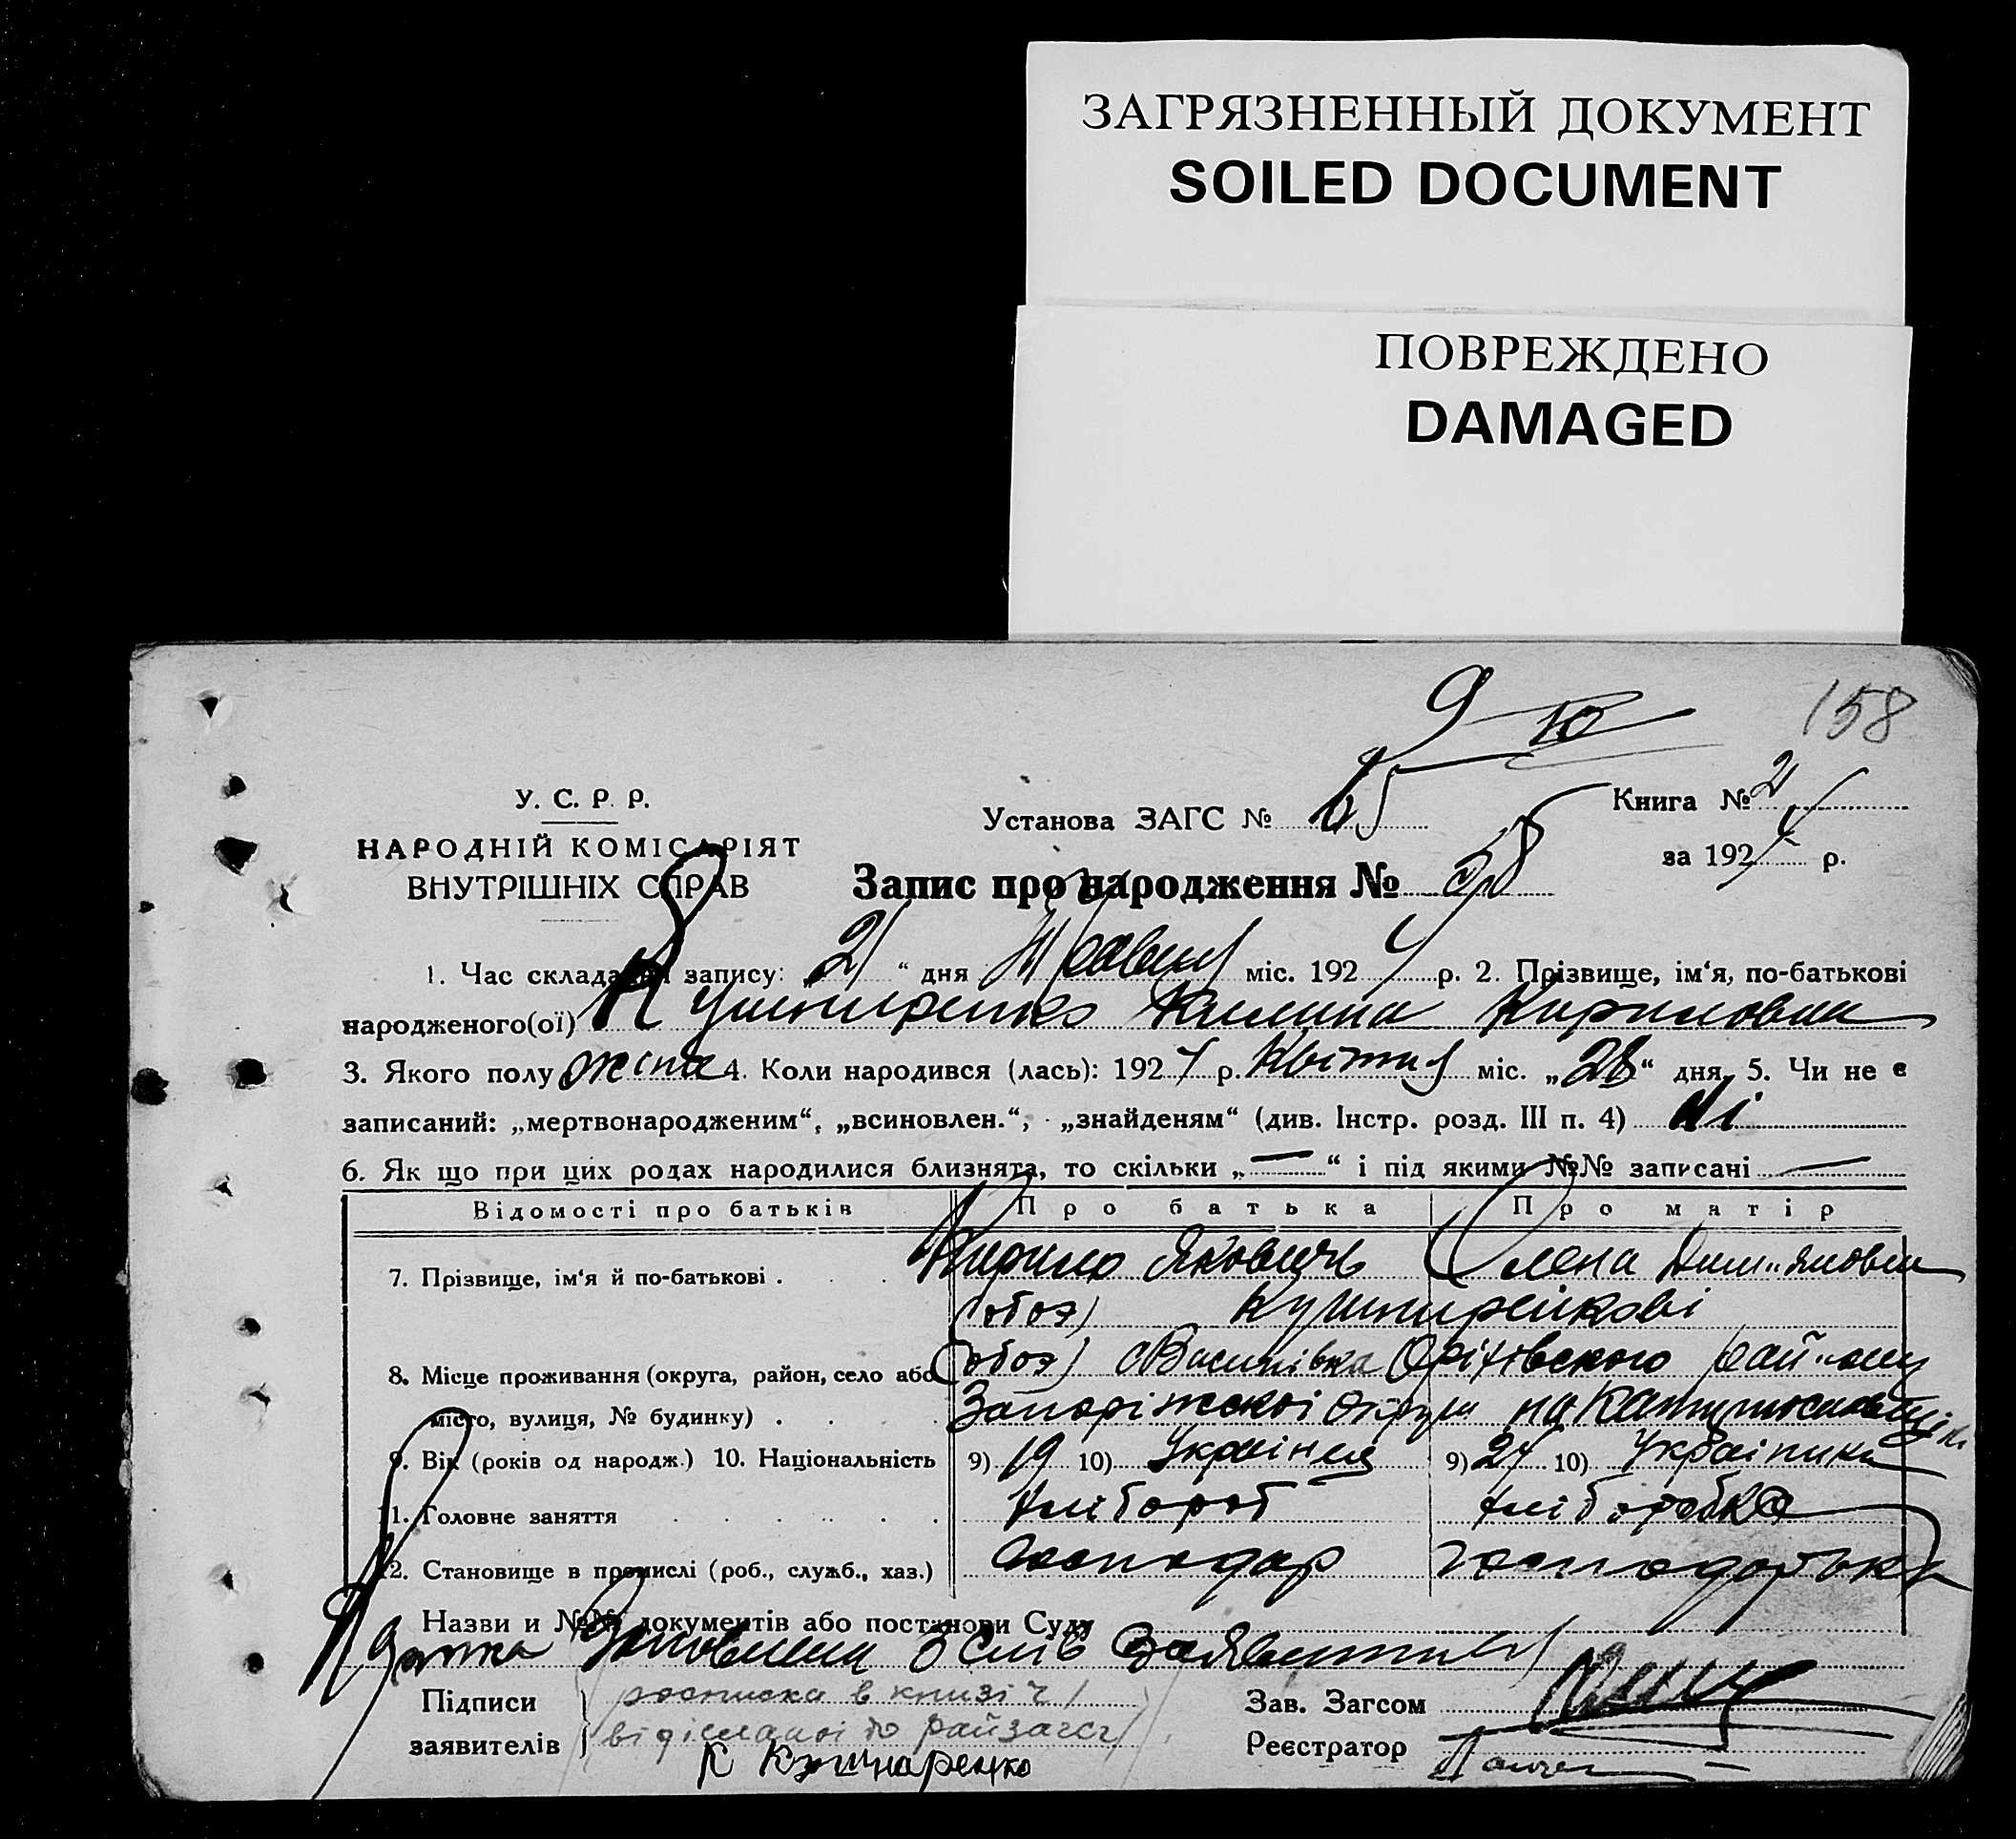 ЗАГРЯЗНЕННЫЙ ДОКУМЕНТ
SOILED DOCUMENT
ПОВРЕЖДЕНО
DAMAGED
158
У. С. Р. Р.
НАРОДНІЙ КОМІСАРІЯТ
ВНУТРІШНІХ СПРАВ
Установа ЗАГС № 65
Книга № 2
за 192 р.
Запис про народження № 58
1. Час складання запису: „21“ дня Травня міс. 192 р. 2. Прізвище, ім‘я, по-батькові
народженого(ої) Килина Кириловна
3. Якого полу жіноч 4. Коли народився (лась): 192 р. Квітня міс. „28“ дня 5. Чи не є
записаний: „мертвонародженим“, „всиновлен.“, „знайденям“ (див. Інстр. розд. III п. 4) Ні
6. Як що при цих родах народилися близнята, то скільки „—“ і під якими №№ записані —
Відомості про батьків Про батька Про матір
7. Прізвище, ім‘я й по-батькові . Кирило Якович Олена
(обоє)
8. Місце проживання (округа, район, село або (обоє) с Василівка Оріхівского району
місто, вулиця, № будинку) . Запоріжскої округи на
9. Вік (років од народж.) 10. Національність 9) 19 10) Українец 9) 24 10) Українка
11. Головне заняття хлібороб хлібо­робка
12. Становище в промислі (роб., служб., хаз.) господар господарька
Назви и №№ документів або постанови Суду
заповнена З слів Заявителя
Підписи росписка в книзі
заявителів відісланої до райзагсу
К
Зав. Загсом
Реєстратор